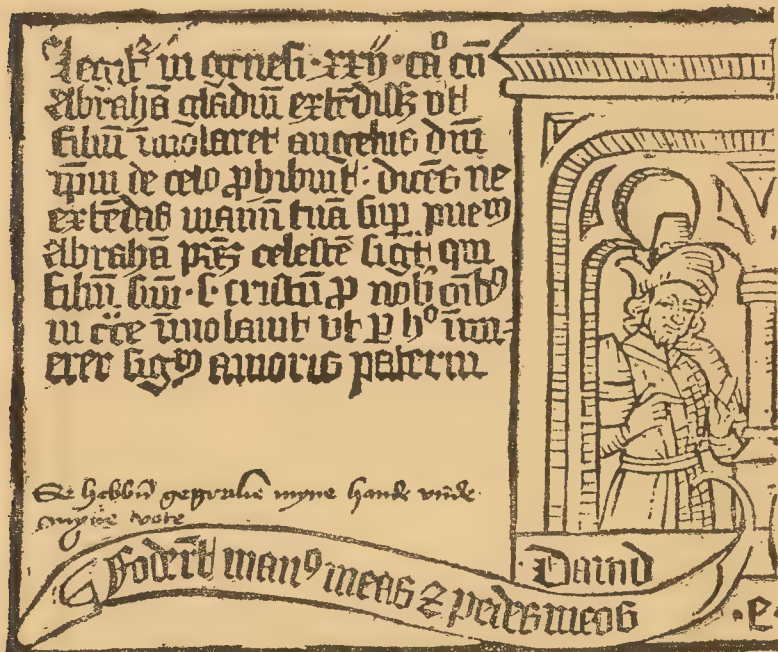 Legit᷑ in genesi ·xxij· ca° cū
Abrahā gladiū extēdiss; vt
filiū īmolaret angelus dn̄i
ip̄m de celo ꝓhibuit: dicēs ne
extēdas manū tuā sup̲ pueꝝ
Abrahā pr̄eꝫ celestē sigt᷑ qui
filiū suū ·s· cristū ꝓ nob̄ oīb⁹
in cͨce īmolauit vt p̲ h° īnu-
eret sigꝫ amoris paterni
Se hebbn̄ gegrauē myne hande vn̄de
myne vote
Foder̄t man⁹ meas ⁊ pedes meos
Dauid
·e·